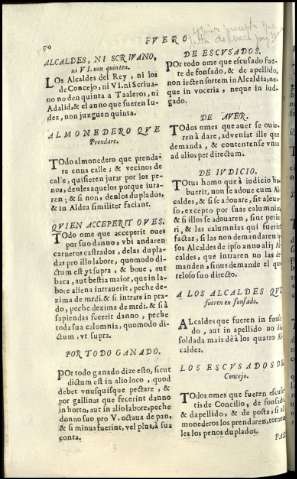 50
FVERO
ALCALDES, NI SCRIVANO,
ni VI. non quintea.
LOs Alcaldes del Rey, ni los
de Concejo, ni VI. ni Scriua-
no non den quinta a Taaleros, ni
Adalid, & el anno que fueren Iu-
dez, non juzguen quinta.
ALMONEDERO QVE
Prendare.
TOdo almonedero que prenda-
re cona calle; & vecinos de
calle, q assieron jurar por los pe-
nos, denles aquelos porque jura-
ren; & si non, denlos duplados,
& in Aldea similiter faciant.
QVIEN ACCEPERIT OVES.
TOdo ome que acceperit oues
por suo danno; vbi andaren
carneros castrados, delas duplar
dar pro illo labore, quomodo di-
ctum est vt supra, & boue, aut
baca, aut bestia maior, que in la-
bore alieno intrauerit, peche de-
zima de mrdi. & si intrare in pra-
do, peche dezima de mrdi. & si à
sapiendas fecerit danno, peche
toda sua calumnia, quomodo di-
ctum, vt supra.
POR TODO GANADO.
POr todo ganado dize esto, sicut
dictum est in alio loco, quod
debet vnusquisque pectare, &
por gallinas que fecerint danno
in horto, aut in alio labore, peche
donno suo pro V. octaua de pan,
& si minus fuerine, vel plus, à sua
conta.
DE ESCVSADOS.
POr todo ome que escusado fue-
re de fonsado, & de apellido,
non iectenfortem in Alcaldia, ne-
que in voceria, neque in iud-
gado.
DE AVER.
TOdos omes que auer se ouie-
ren à dare, adveniat ille que
demanda, & contentense vnus
ad alios per directum.
DE IVDICIO.
TOtus homo que à iudicio ha-
buerit, non se adoue cum Al-
caldes, & si se adouare, sit aleuo-
so, excepto por suas calumnias,
& si illis se adouaren, sint perju-
ri, & las calumnias qui fuerint
factas, si las non demandaren su-
os Alcaldes de ipso anno, alij Al-
caldes, que intraren no las de-
manden, a sint demandè el que-
reloso suo directo.
A LOS ALCALDES QVE
fueren en fonsado.
ALcaldes que fueren in fonsa-
do, aut in apellido no dia
soldada mais de à los quatro Al-
caldez.
LOS ESCVSADOS DE
Concejo.
TOdos omes que fueren escusa-
tis de Concilio, de fonsado
& dapellido, & de posta; si al
monederos los prendaren, torren
les los penos duplados.